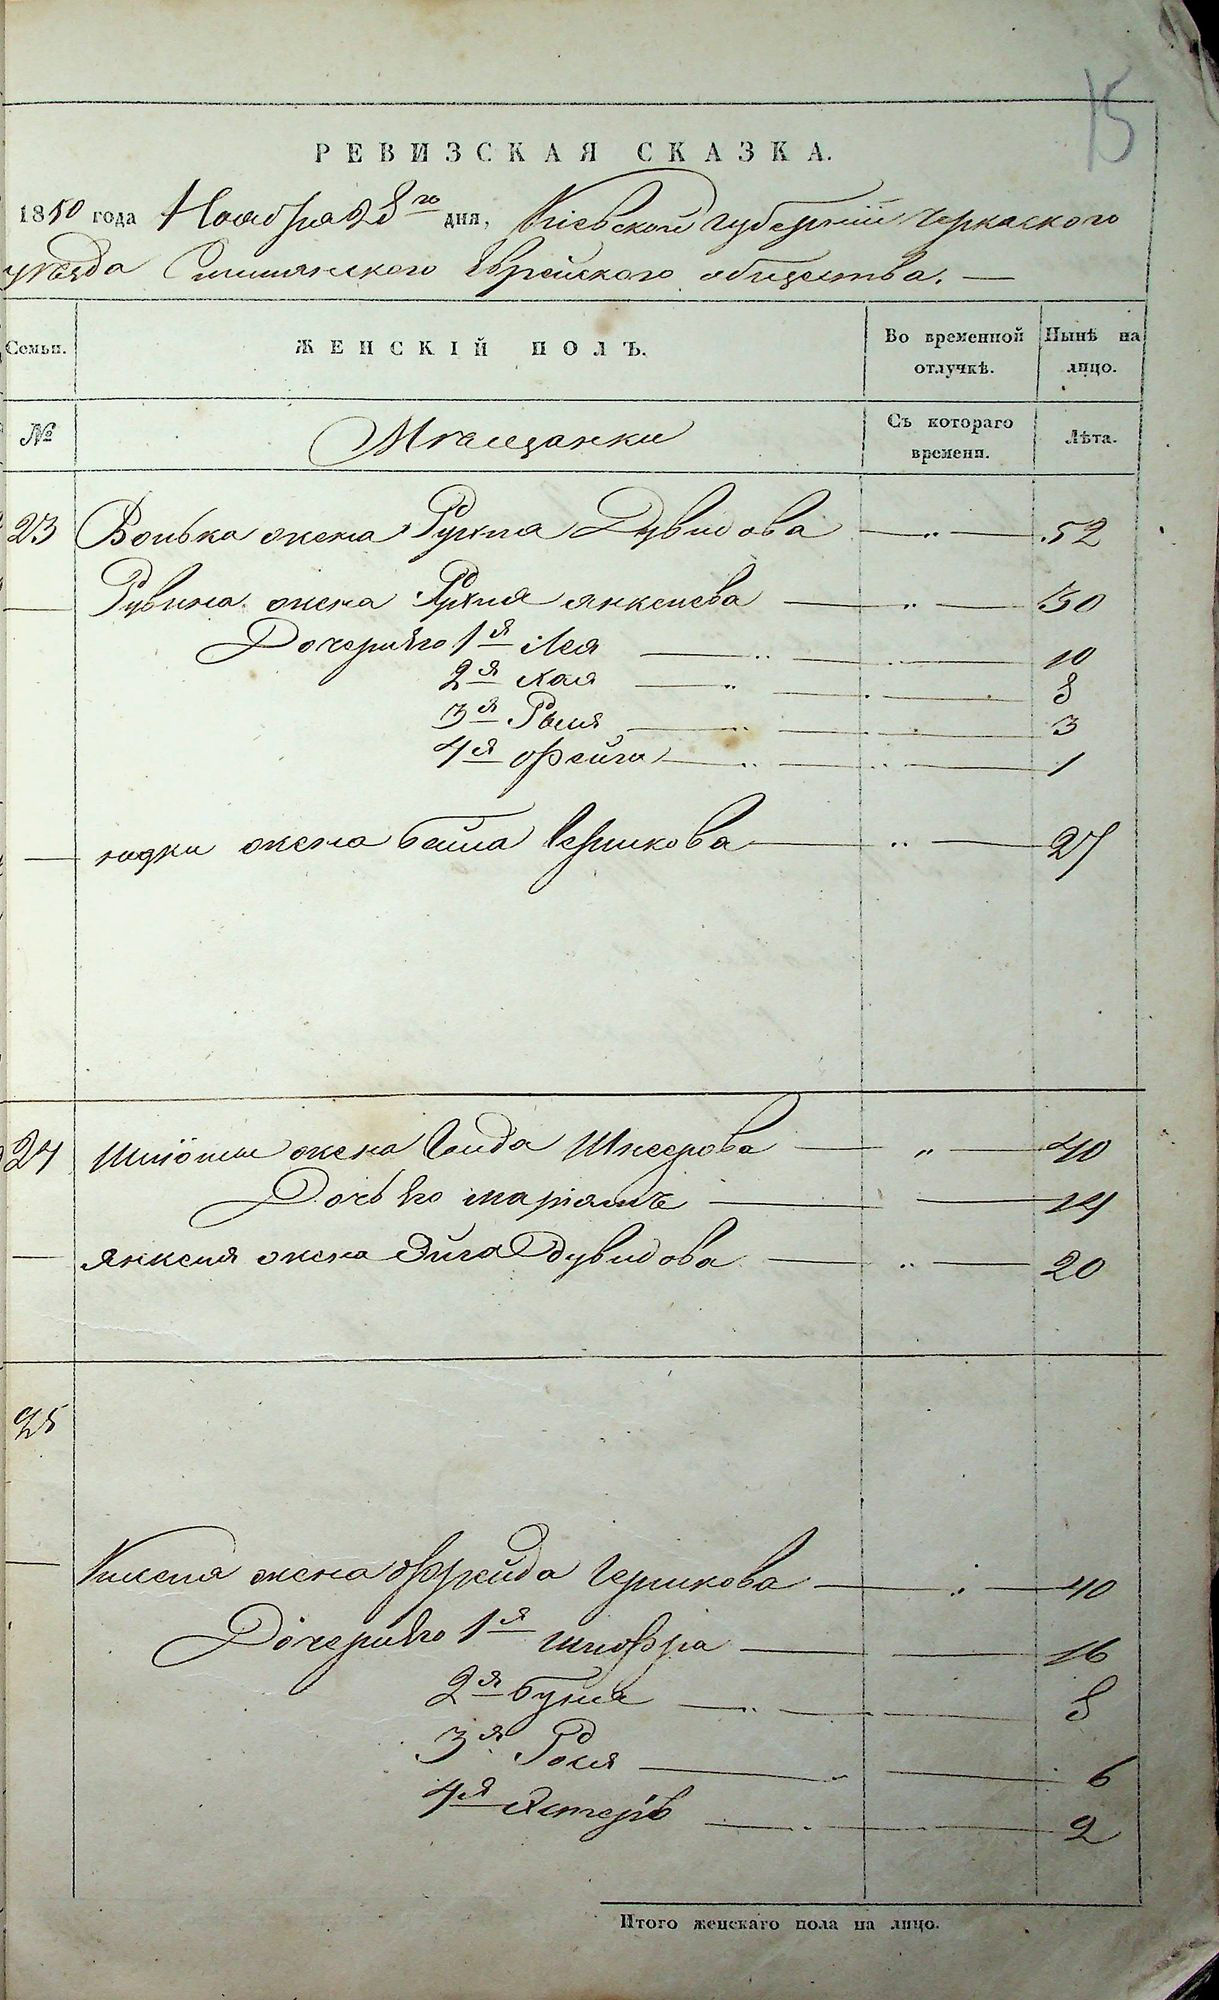 15
РЕВИЗСКАЯ СКАЗКА.
1850 года Ноября 28го дня, Кіевской Губерніи Черкаского
уѣзда Смѣлянского Еврейского общества. —
Семьи. ЖЕНСКІЙ ПОЛЪ. Во временной отлучкѣ. Нынѣ на лицо.
№ Мѣщанки Съ котораго времени. Лѣта.
23 Волька жена Рухля Дувидова — „ — 52
— Рувина жена Рухля Янкелева — „ — 30
Дочери его 1я Лея — „ — 10
2я Хая — „ — 8
3я Рыся — „ — 3
4я Фейга — „ — 1
— Юдки жена Бейла Гершкова — „ — 27
24 жена Гинда Шнеерова — „ — 40
Дочь его Маріямъ — 14
— Янкеля жена Эйга Дувидова — „ — 20
25
— жена Фрейда Гершкова — „ — 40
Дочери его 1я Шифра — 16
2я Буня — „ — 8
3я Рося — „ — 6
4я — „ — 2
Итого женскаго пола на лицо.